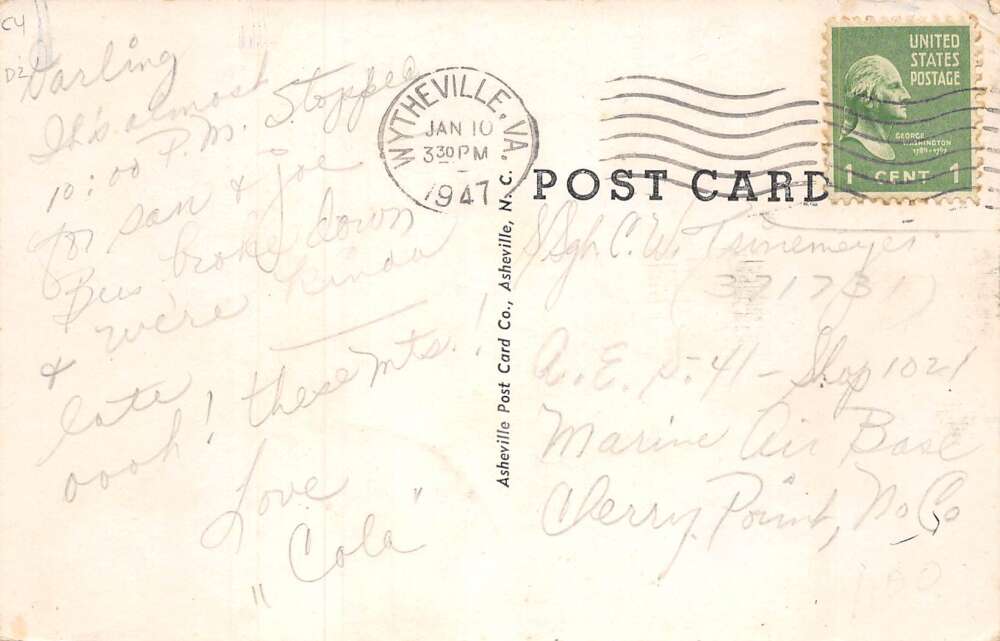 C4
D2
Darling
It's almost
10:00 P.M. Stopped
for san & joe
Bus broke down
& we're kinda
late
oooh! these Mts.!
Love
"Cola"
WYTHEVILLE, VA.
JAN 10
330 PM
1947
UNITED
STATES
POSTAGE
GEORGE
WASHINGTON
1789-1797
1 CENT 1
POST CARD
Asheville Post Card Co., Asheville, N. C.
S/Sgt. C. W.
(371731)
A. E. S. - 41 - Shop 1021
Marine Air Base
Cherry Point, No Co